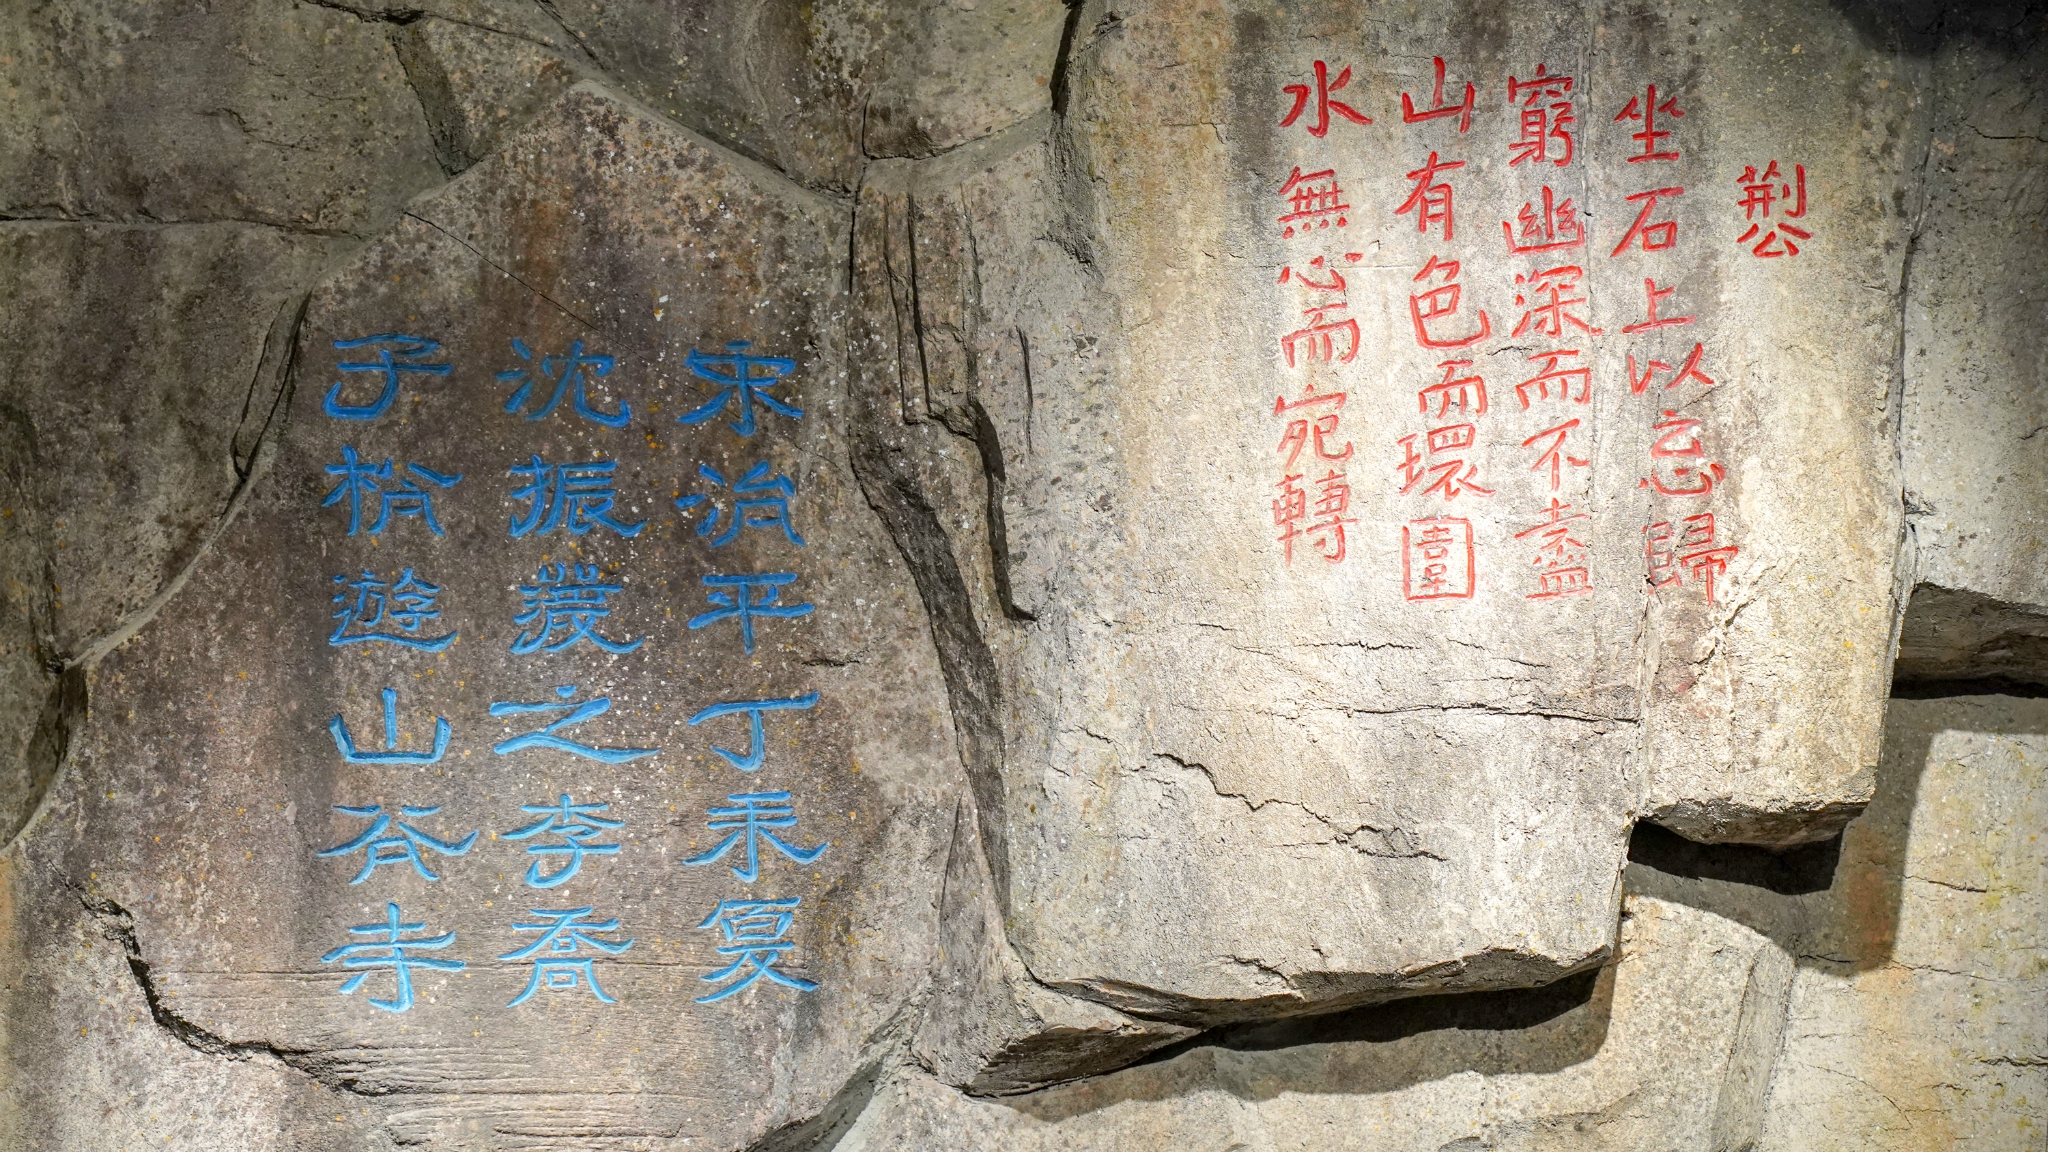 荆公
坐石上以忘歸
窮幽深而不盡
山有色而環圍
水無心而宛轉
宋治平丁未夏
沈振之李喬
子遊山谷寺